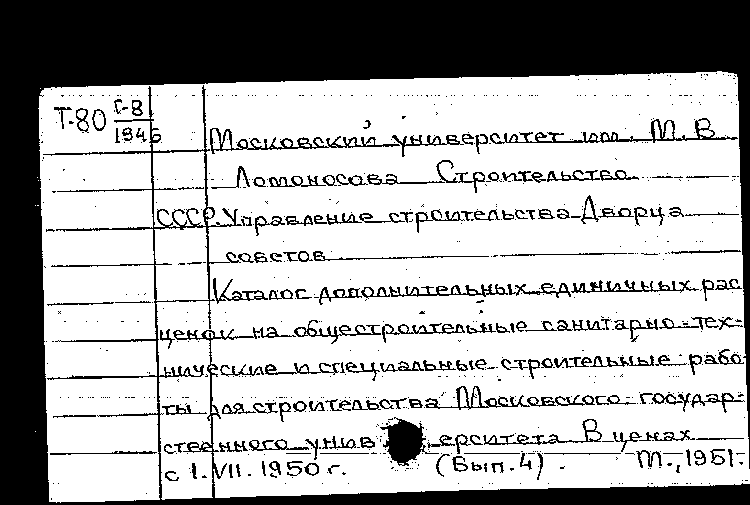 Т-80 Г-8
1946
Московский университет им. М. В
Ломоносова Строительство
СССР. Управление строительства Дворца
советов
Каталог дополнительных единичных рас
ценок на общестроительные санитарно-тех-
нические и специальные строительные рабо
ты для строительства Московского государ-
ственного унив ерситета В ценах
с 1.VII.1950 г. (Вып. 4). М., 1951.